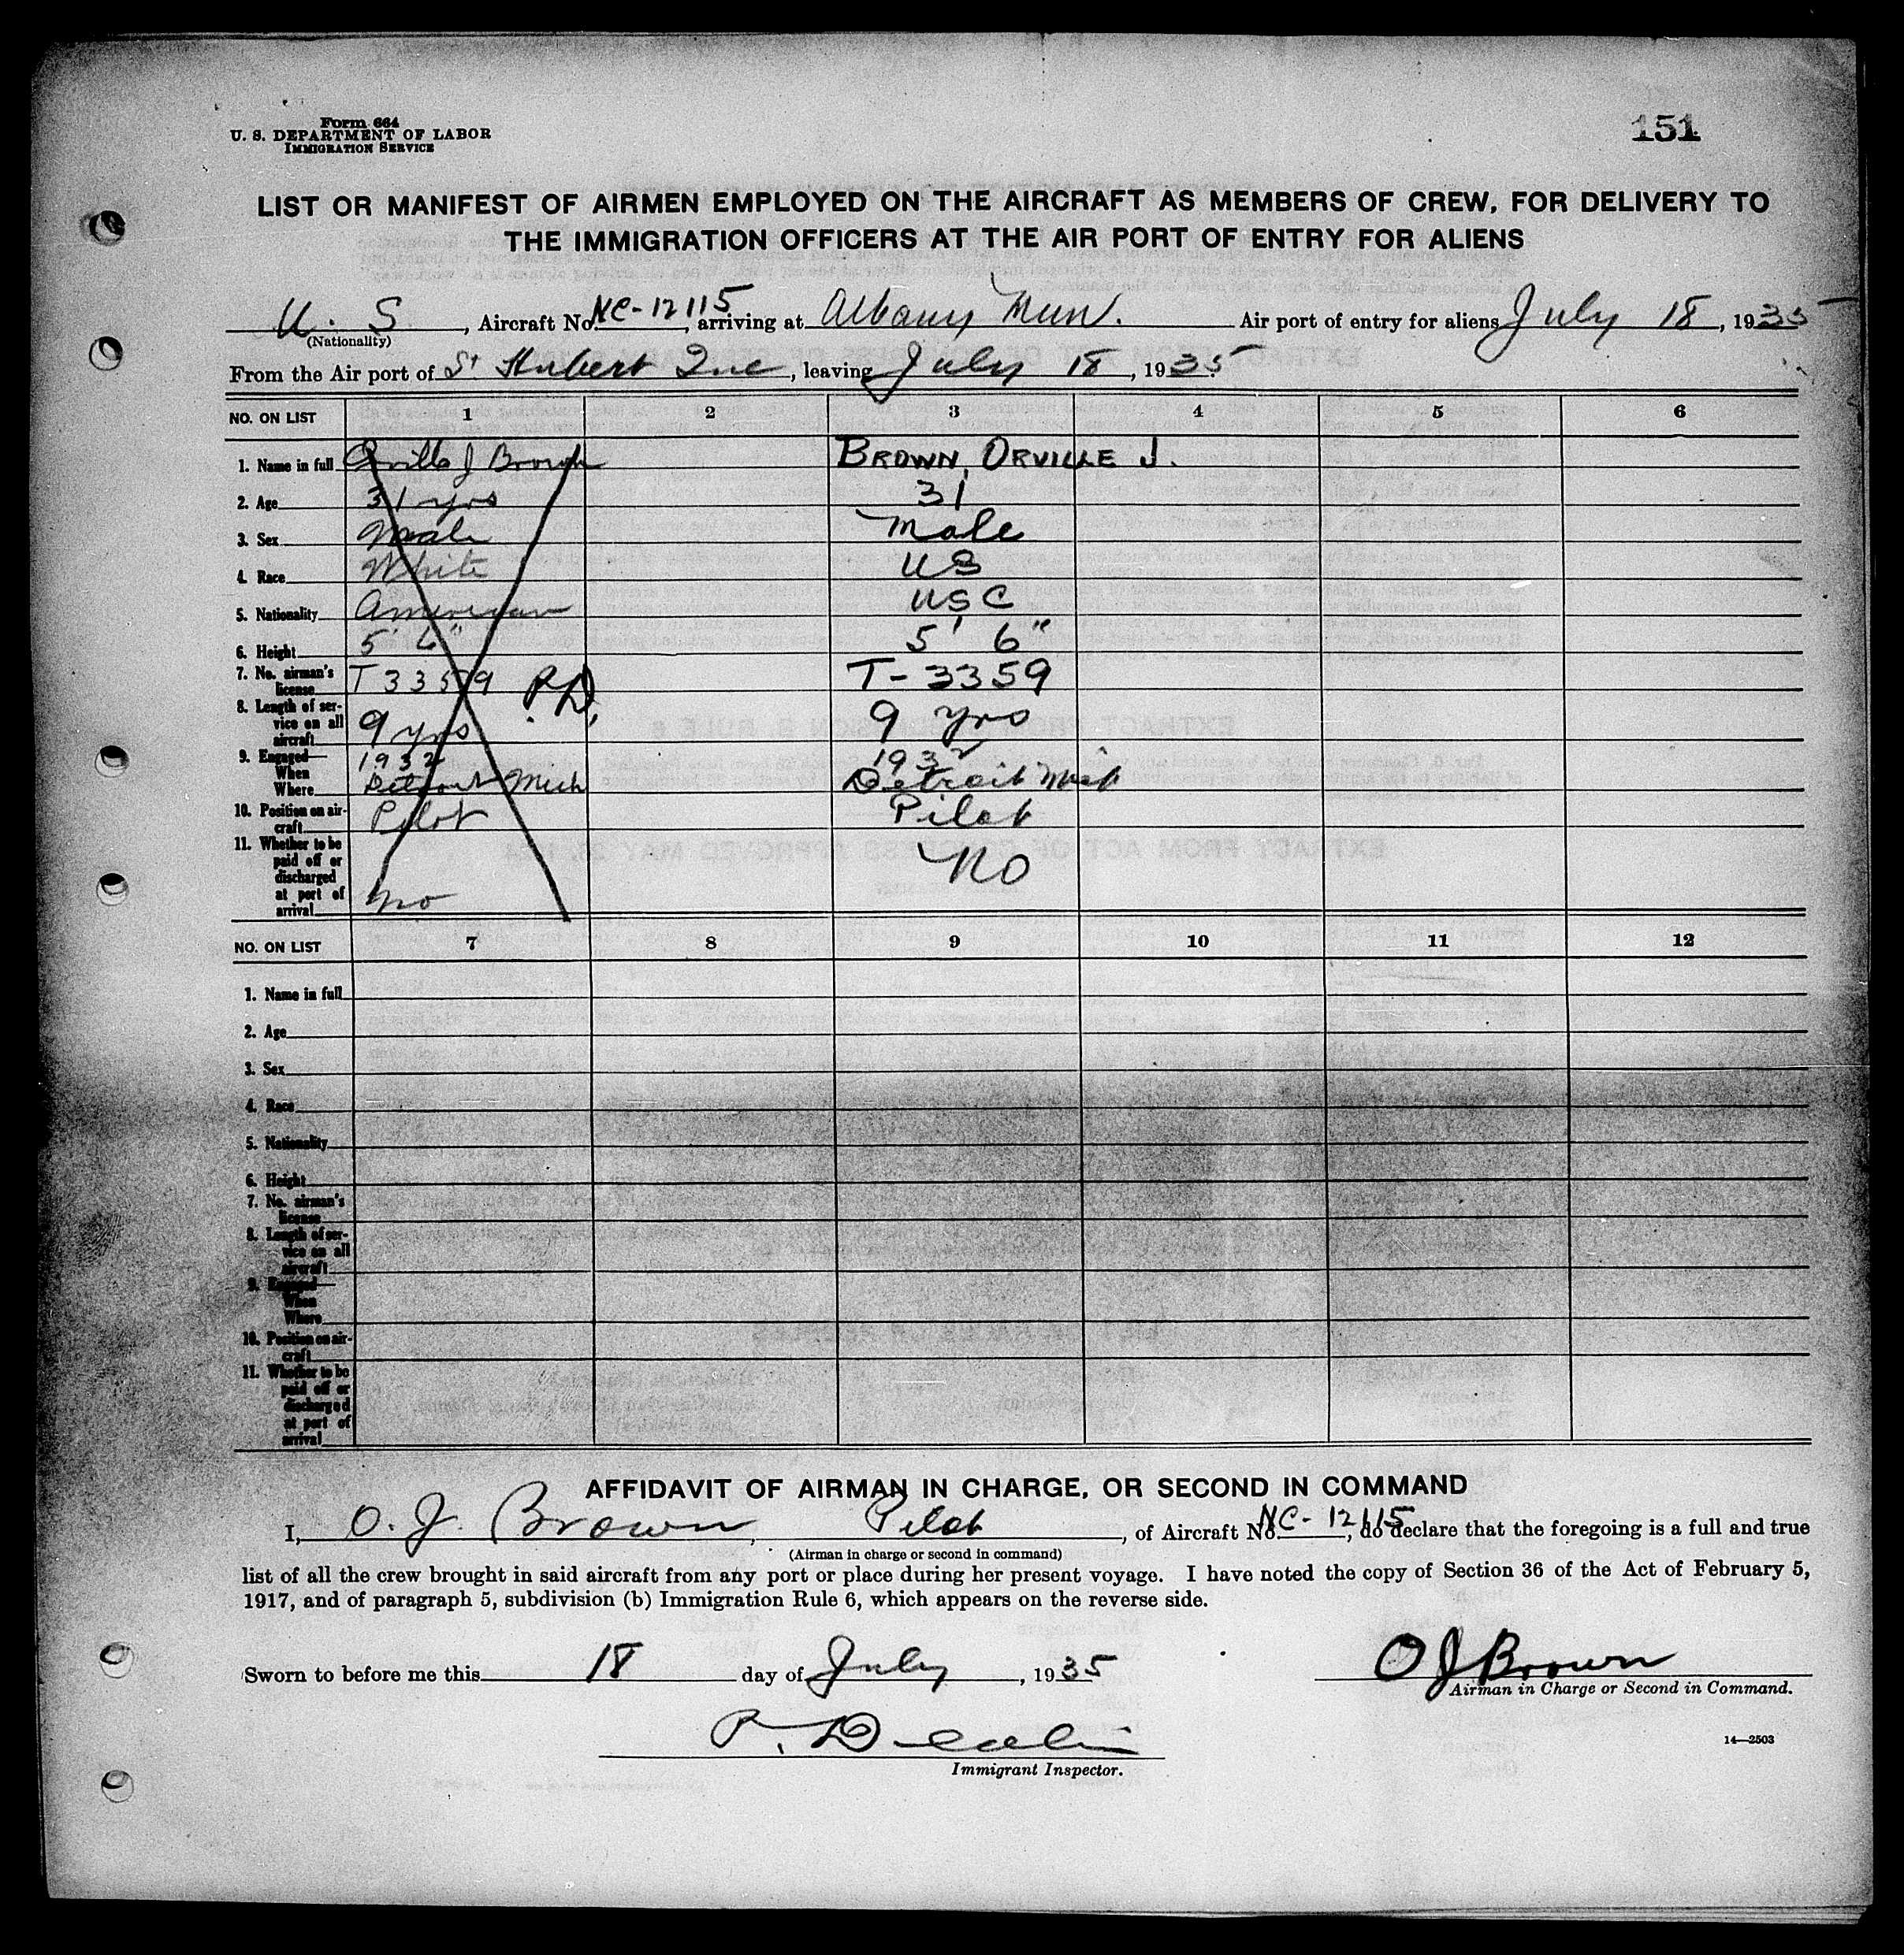 Form 664
U. S. DEPARTMENT OF LABOR
IMMIGRATION SERVICE
151
LIST OR MANIFEST OF AIRMEN EMPLOYED ON THE AIRCRAFT AS MEMBERS OF CREW, FOR DELIVERY TO
THE IMMIGRATION OFFICERS AT THE AIR PORT OF ENTRY FOR ALIENS
U. S , Aircraft No. NC-12115, arriving at Albany Mun. Air port of entry for aliens July 18, 1935
(Nationality)
From the Air port of St Hubert Que, leaving July 18, 1935
NO. ON LIST 1 2 3 4 5 6
1. Name in full Orville J Brown BROWN, ORVILLE J.
2. Age 31 yrs 31
3. Sex Male Male
4. Race White US
5. Nationality American USC
6. Height 5' 6" 5' 6"
7. No. airman's
license T 3359 P.D. T-3359
8. Length of ser-
vice on all
aircraft 9 yrs 9 yrs
9. Engaged—
When 1932 1932
Where Detroit Mich Detroit Mich
10. Position on air-
craft Pilot Pilot
11. Whether to be
paid off or
discharged
at port of
arrival no No
NO. ON LIST 7 8 9 10 11 12
1. Name in full
2. Age
3. Sex
4. Race
5. Nationality
6. Height
7. No. airman's
license
8. Length of ser-
vice on all
aircraft
9. Engaged—
When
Where
10. Position on air-
craft
11. Whether to be
paid off or
discharged
at port of
arrival
AFFIDAVIT OF AIRMAN IN CHARGE, OR SECOND IN COMMAND
I, O. J. Brown, Pilot, of Aircraft No. NC-12115, do declare that the foregoing is a full and true
(Airman in charge or second in command)
list of all the crew brought in said aircraft from any port or place during her present voyage. I have noted the copy of Section 36 of the Act of February 5,
1917, and of paragraph 5, subdivision (b) Immigration Rule 6, which appears on the reverse side.
Sworn to before me this 18 day of July, 1935
O J Brown
Airman in Charge or Second in Command.
P. D
Immigrant Inspector.
14—2503